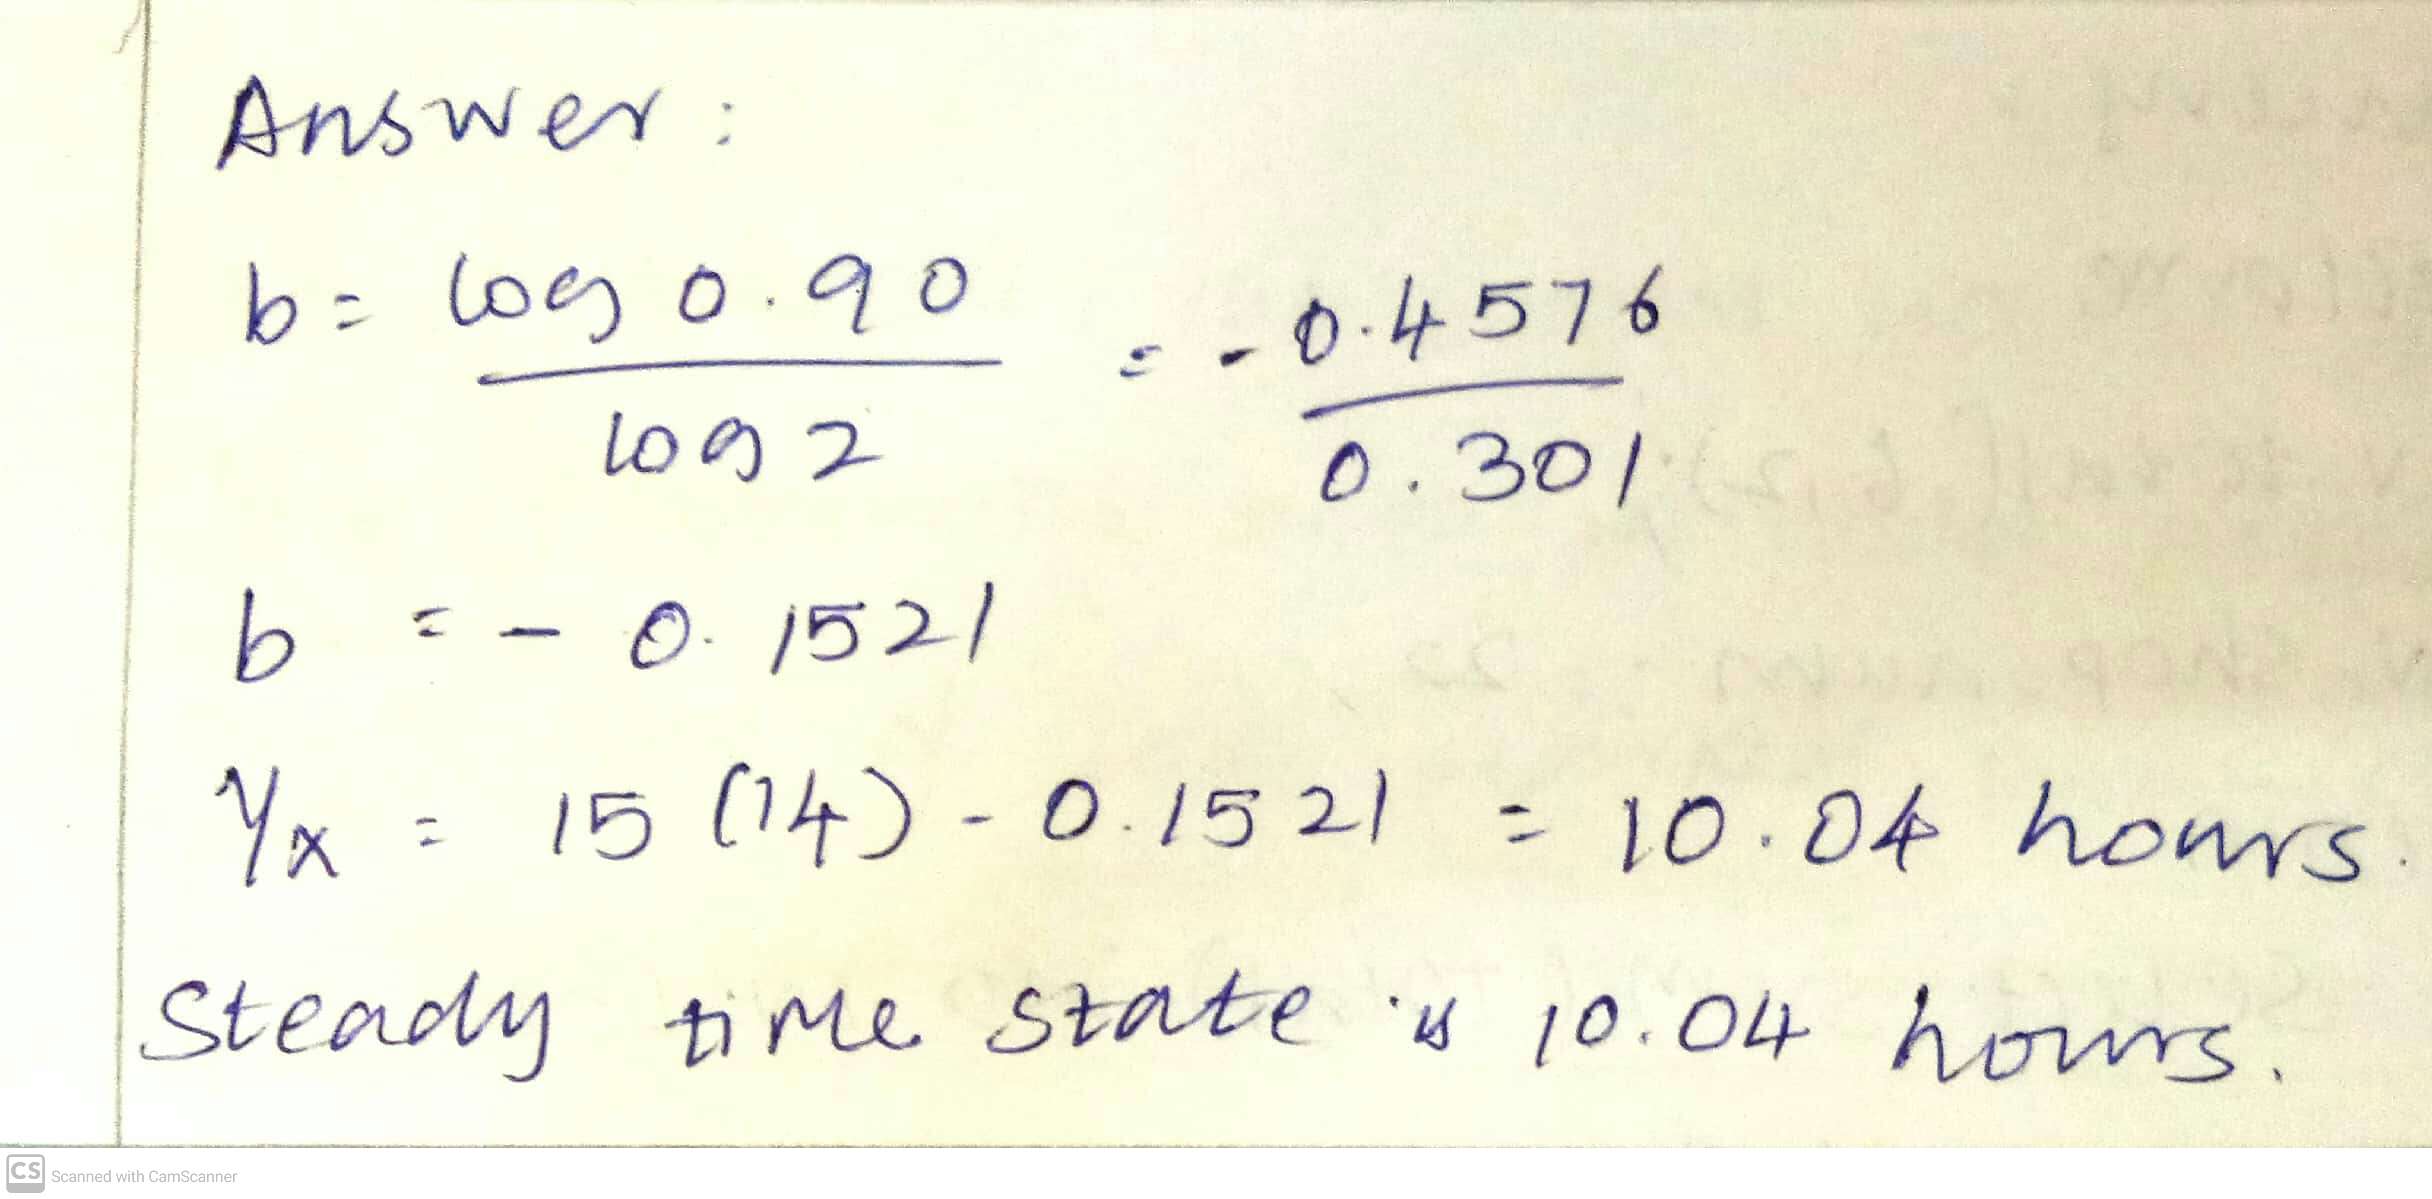 Answer:
b = log 0.90 / log 2 = - 0.4576 / 0.301
b = - 0.1521
Yx = 15 (14) - 0.1521 = 10.04 hours.
Steady time state is 10.04 hours.
CS Scanned with CamScanner